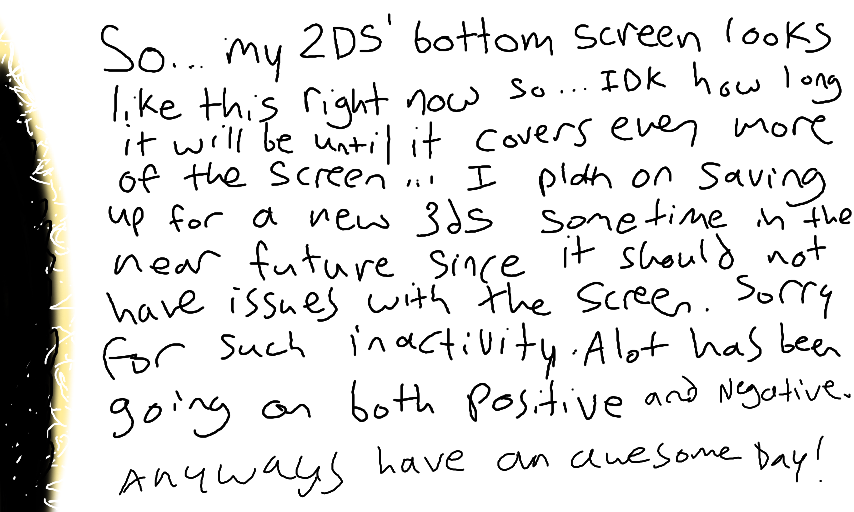 So... my 2DS' bottom screen looks
like this right now so... IDK how long
it will be until it covers even more
of the screen... I plan on saving
up for a new 3ds sometime in the
near future since it should not
have issues with the screen. Sorry
for such inactivity. Alot has been
going on both positive and Negative.
Anyways have an awesome Day!